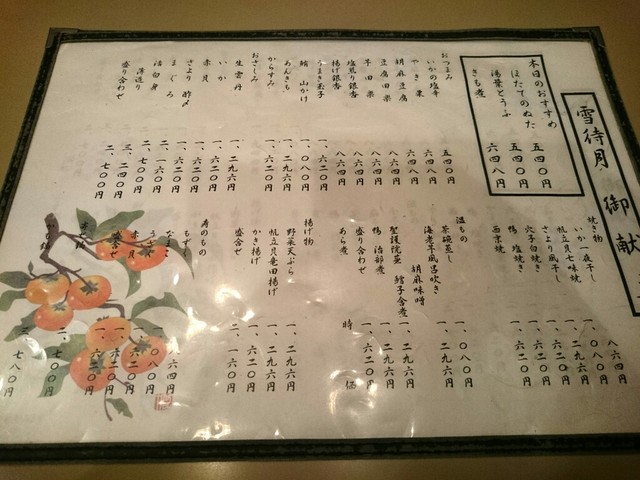 雪待月 御献
本日のおすすめ
ほたてのぬた 五四〇円
湯葉とうふ 五四〇円
きも煮 六四八円
おつまみ
いかの塩辛 五四〇円
やき栗 六四八円
胡麻豆腐 六四八円
豆腐田楽 八六四円
芋田楽 八六四円
塩煎り銀杏 八六四円
揚げ銀杏 八六四円
うまき玉子 一、六二〇円
鮪 山かけ 一、〇八〇円
あんきも 一、二九六円
からすみ 一、六二〇円
おさしみ
生雲丹 一、二九六円
いか 一、六二〇円
赤貝 一、六二〇円
さより 酢〆 一、六二〇円
まぐろ 二、一六〇円
活白身 二、七〇〇円
薄造り 三、二四〇円
盛り合わせ 二、七〇〇円
焼き物
いか一夜干し 八六四円
帆立貝七味焼 一、〇八〇円
さより風干し 一、二九六円
穴子白焼き 一、六二〇円
鴨 塩焼き 一、六二〇円
西京焼 一、六二〇円
温もの
茶碗蒸し 一、〇八〇円
海老芋風呂吹き 胡麻味噌 一、二九六円
聖護院蕪 鱈子含煮 一、二九六円
鴨 治部煮 一、二九六円
盛り合わせ 一、六二〇円
あら煮 時価
揚げ物
野菜天ぷら 一、二九六円
帆立貝竜田揚げ 一、二九六円
かき揚げ 一、六二〇円
盛合せ 二、一六〇円
寿のもの
もずく 八六四円
なまこ 一、〇八〇円
うざく 一、六二〇円
赤貝 一、六二〇円
盛合せ 一、六二〇円
二、七〇〇円
七八〇円